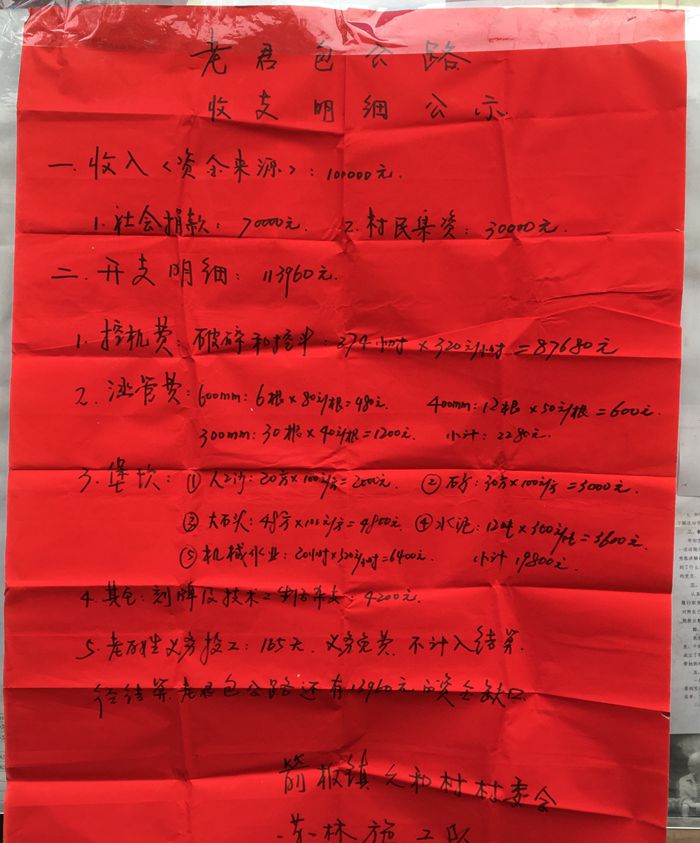 老君包公路
收支明细公示
一.收入(资金来源):100000元.
1.社会捐款:70000元. 2.村民集资:30000元.
二.开支明细:113960元.
1.挖机费:破碎和挖斗:274小时×320元/小时=87680元
2.涵管费:600mm:6根×80元/根=480元. 400mm:12根×50元/根=600元.
300mm:30根×40元/根=1200元. 小计:2280元.
3.堡坎:①人工沙:20方×100元/方=2000元. ②石子:30方×100元/方=3000元.
③大石头:48方×100元/方=4800元. ④水泥:12吨×300元/吨=3600元.
⑤机械作业:20小时×320元/小时=6400元. 小计19800元.
4.其它:刻牌及技术工生活开支:4200元.
5.老百姓义务投工:165天.义务免费.不计入结算.
经结算.老君包公路还有13960元的资金缺口.
箭板镇元和村村委会
林施工队